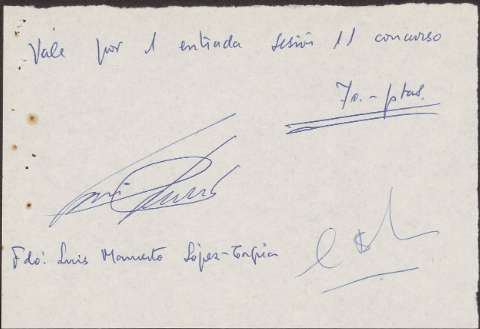 Vale por 1 entrada sesión 11 concurso
70.- ptas.
Fdo: Luis Mamerto López-Tapia